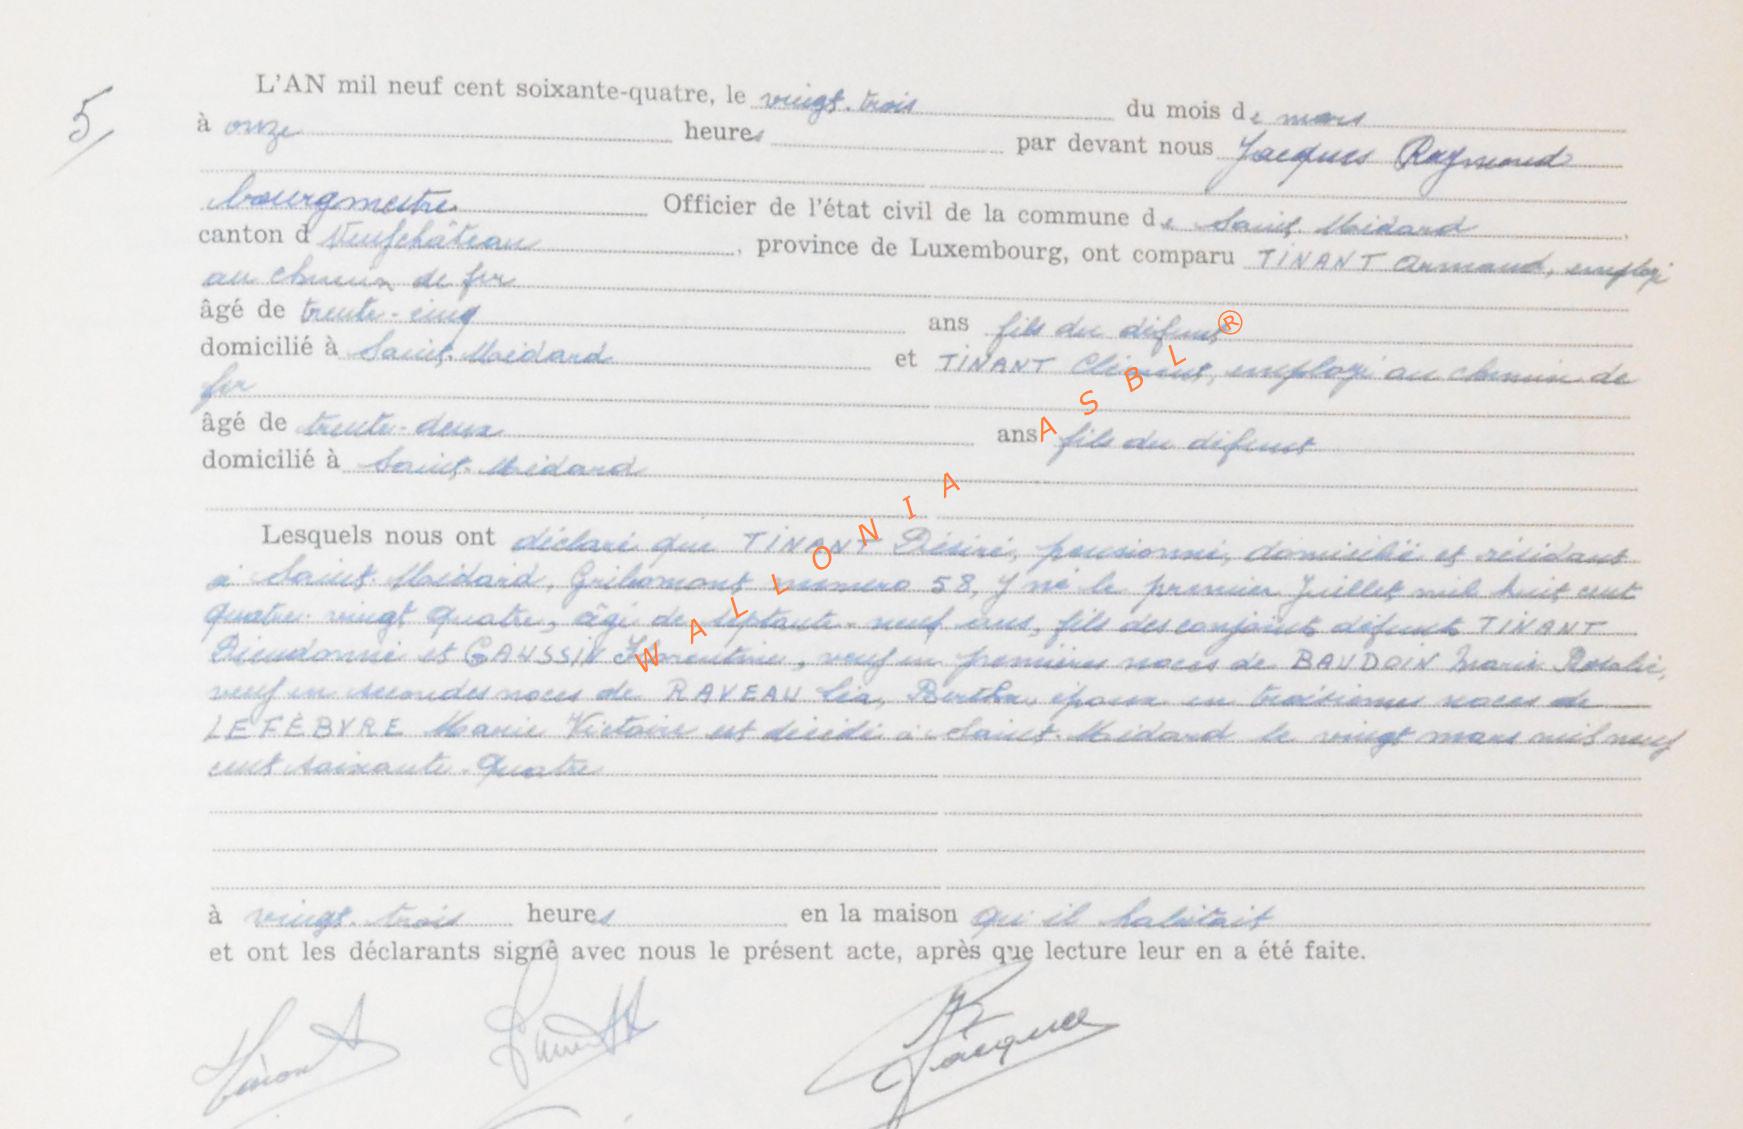 5
L'AN mil neuf cent soixante-quatre, le vingt-trois du mois de mars
à onze heures par devant nous Jacques Raymond
bourgmestre Officier de l'état civil de la commune de Saint-Médard
canton d Neufchâteau, province de Luxembourg, ont comparu TINANT Armand, employé
au chemin de fer
âgé de trente-cinq ans fils du défunt
domicilié à Saint-Médard et TINANT Clément, employé au chemin de
fer
âgé de trente-deux ans fils du défunt
domicilié à Saint-Médard
Lesquels nous ont déclaré que TINANT Désiré, pensionné, domicilié et résidant
à Saint-Médard, Gribomont numéro 58, y né le premier juillet mil huit cent
quatre-vingt quatre, âgé de septante-neuf ans, fils des conjoints défunts TINANT
Dieudonné et GAUSSIN, veuf en premières noces de BAUDOIN Marie Rosalie,
veuf en secondes noces de RAVEAU Léa, Bertha, époux en troisièmes noces de
LEFÈBVRE Marie Victoire est décédé à Saint-Médard le vingt mars mil neuf
cent soixante-quatre
à vingt-trois heures en la maison qu'il habitait
et ont les déclarants signé avec nous le présent acte, après que lecture leur en a été faite.
Tinant
R Jacques
WALLONIA ASBL ®